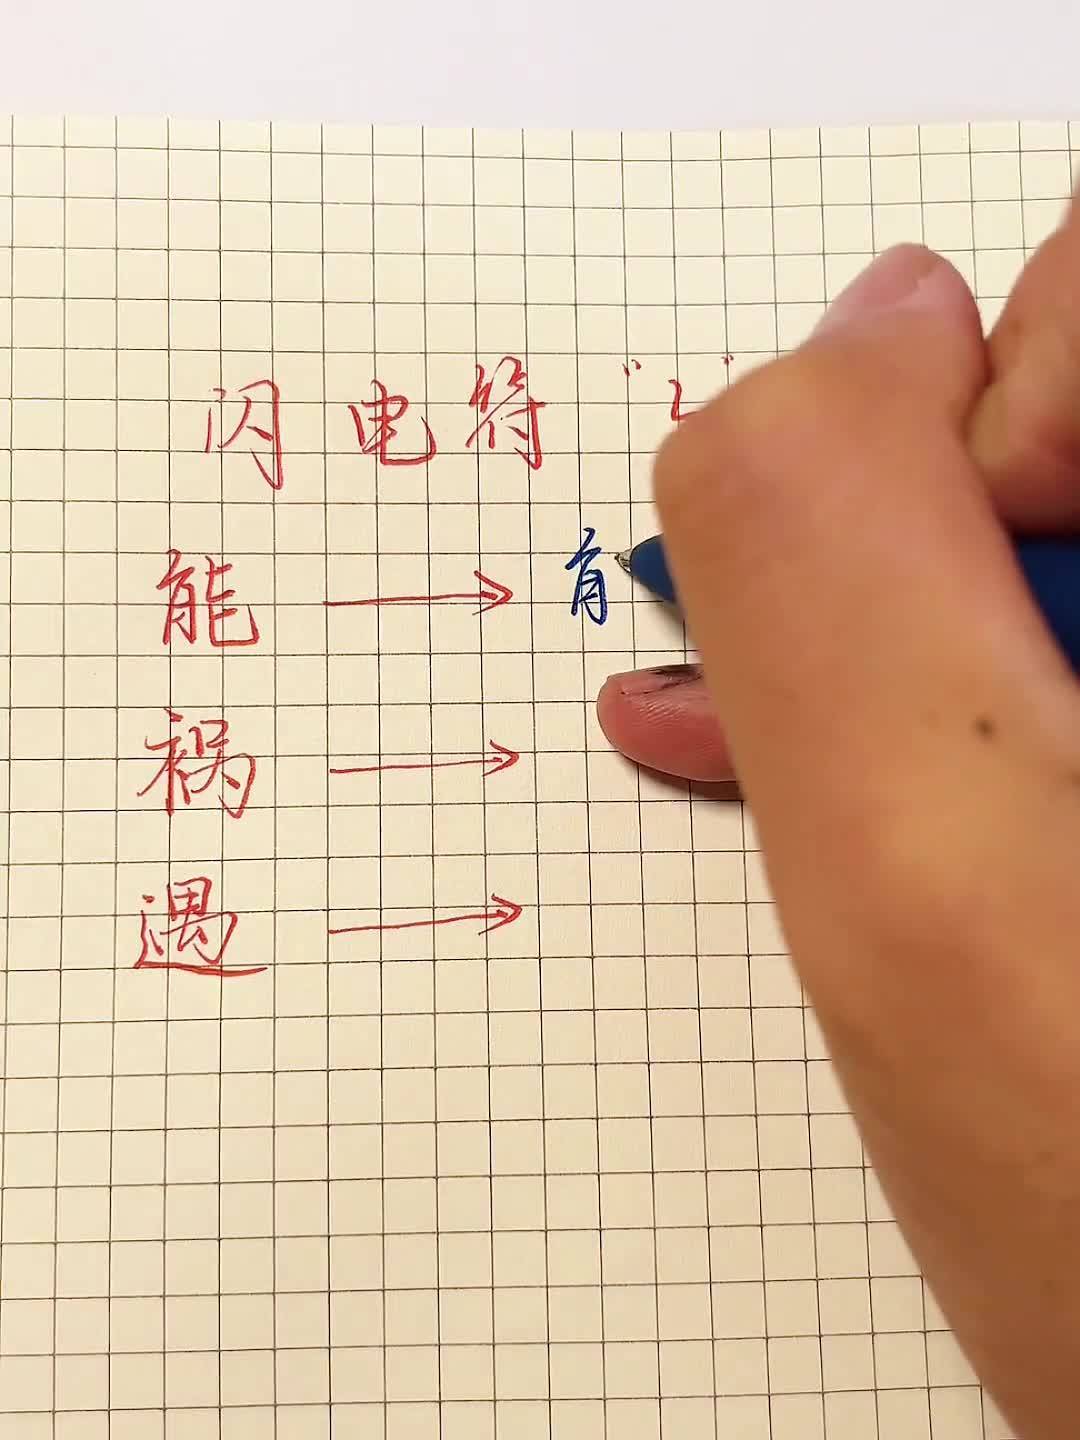 闪电符 "㇊"
能 →
祸 →
遇 →